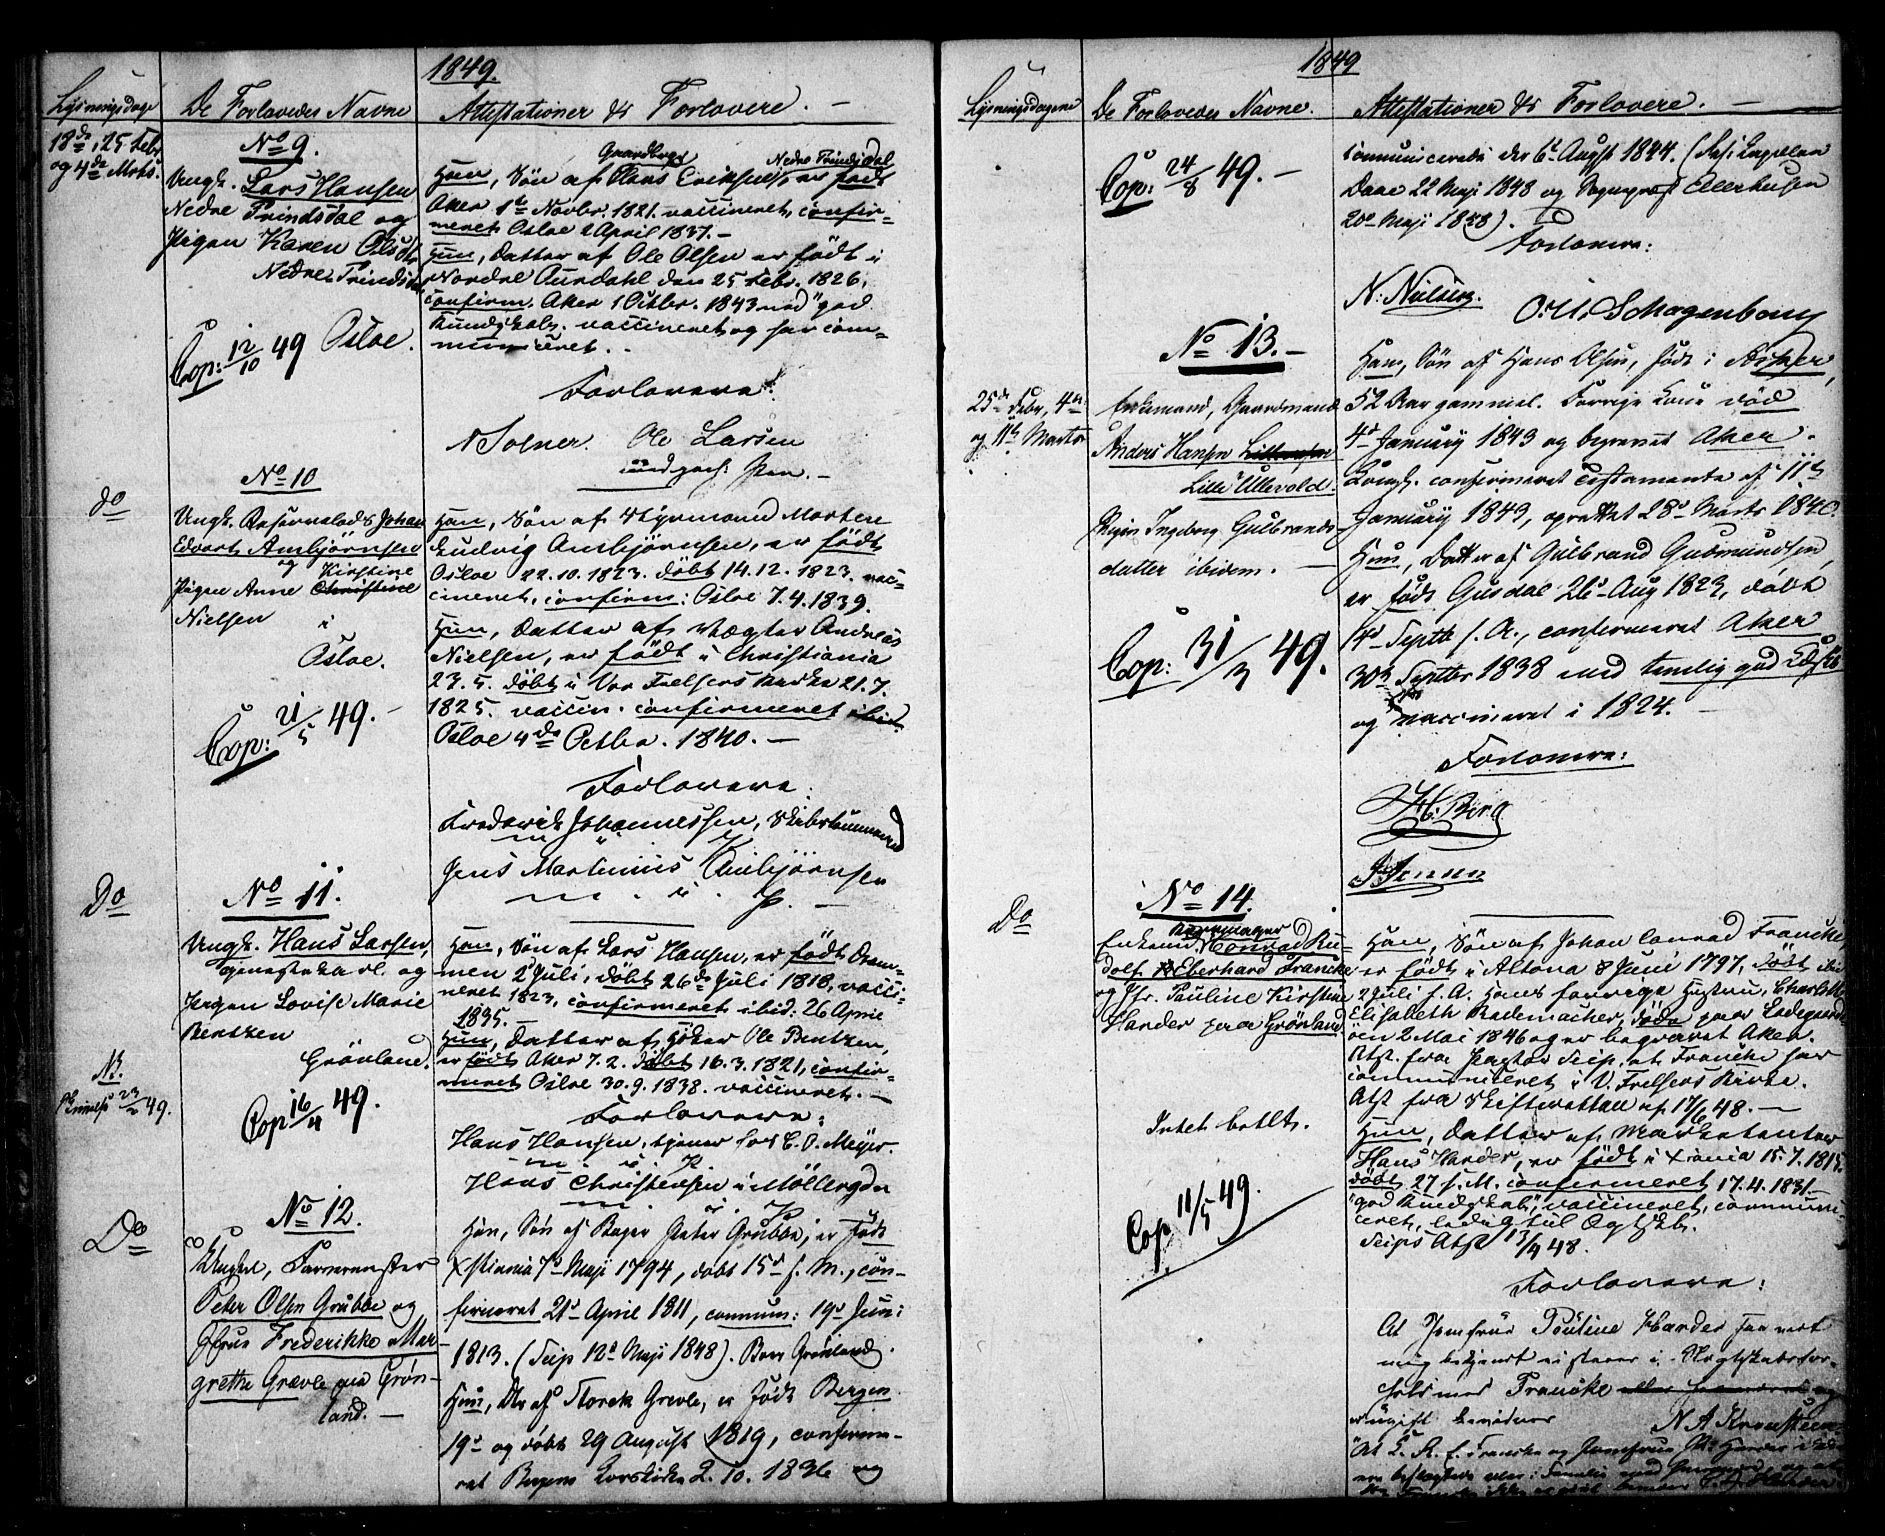 1849.
Lysningsdage
De Forlovedes Navne
Attestationer & Forlovere. -
18de, 25 Febr
og 4de Marts.
No 9.
Ungk. Lars Hansen
Nedre Prindsdal og
Pigen Karen Olsdtr
Nedre Prindsdal
Osloe.
Cop: 12/10 49
Gaardbrgr Nedre Prindsdal
Han, Søn af Hans Eriksen, er født
Aker 1te Novbr. 1821. vaccineret, confir-
meret Osloe 2 April 1837. -
Hun, Datter af Ole Olsen er født i
Nordre Aurdahl den 25 Febr. 1826,
confirm. Aker 1 Octbr. 1843 med "god
Kundskab. vaccineret og har com-
municeret.
Forlovere:
N Solner. Ole Larsen
med paah. Pen. -
do
No 10
Ungk. Johan
Edvart Ambjörnsen
og Kirstine
Pigen Anne Christine
Nielsen i
Osloe.
Cop: 21/5 49. -
Han, Søn af Styrmand Mortens
Ludvig Ambjörnsen, er født
Osloe 22.10.1823. døbt 14.12.1823. vac-
cineret, confirm: Osloe 7.4.1839.
Hun, Datter af Vægter Andreas
Nielsen, er født i Christiania
23.5. døbt i Vor Frelsers Kirke 21.7.
1825. vaccin. confirmeret ibid.
Osloe 4de Octbr. 1840. -
Forlovere:
Frederik Johannessen, Skibstømmermand
Jens Martinius Ambjörnsen
Do
No 11.
Ungk. Hans Larsen,
og
Pigen Lovise Marie
Bentzen
Grönland.
NB.
23/2 49.
Cop 16/4 49.
Han, Søn af Lars Hansen, er født Dram-
men 2 Juli, døbt 26de Juli 1818, vacci-
neret 1823, confirmeret ibid: 26 April
1835. -
Hun, Datter af Høker Ole Bentzen,
er født Aker 7.2. døbt 16.3.1821, confir-
meret Osloe 30.9.1838. vaccineret. -
Forlovere:
Hans Hansen, tjener hos C. O. Meyer.
Hans Christensen i Möllergdn
Do
No 12.
Ungkl,
Peter Olsen Grubbe og
Jfrue Frederikke Mar-
grethe Grevle paa Grøn-
land. -
Han, Søn af Bager Peter Grubbe, er født
Xstiania 7de Maji 1794, døbt 15de s. M., con-
firmeret 21de April 1811, commun: 19de Juni
1813. (Seip 12te Maji 1848). Boer Grönland.
Hun, Dtr af Storck Grevle, er født Bergen
19de og døbt 29 August 1819, confirme-
ret Bergens Korskirke 2.10.1836 og
1849
Lysningsdagene
De Forlovedes Navne.
Attestationer & Forlovere. -
Cop: 24/8 49. -
communicerede der 6te Augst 1844. (Res: Capellan
Daae 22 Maji 1848 og Sognepræst Ellerhusen
20de Maji 1848).
Forlovere:
N: Nielsen.
O. U. Schagenborg
No 13. -
25de Febr, 4de
og 11te Marts
Enkemand, Gaardmand
Anders Hansen
Lille Ullevold.
Pigen Ingeborg Gulbrands-
datter ibidem. -
Cop: 31/3 49.
Han, Søn af Hans Olsen, født i Asker,
52 Aar gammel. Forrige Kone død
4de January 1843 og begravet Aker.
Kongl. confirmeret Testamente af 11te
January 1849, oprettet 28de Marts 1840.
Hun, Datter af Gulbrand Gudmundsen,
er født Gusdal 26de Aug 1823, døbt
14de Septb s. A., confirmeret Aker
30te Septbr 1838 med temlig god Kdskb
og vaccineret i 1824. -
Forlovere:
H. Berg
Jensen
Do
No 14.
Enkemd. Conrad Ru-
dolf Eberhard Francke
og Jfr. Pauline Kirstine
Harder paa Grönland
Intet betlt.
Cop 11/5 49.
Han, Søn af Johan Conrad Francke
er født i Altona 8 Juni 1797, døbt ibid
2 Juli s. A. Hans forrige Hustru, Charlotte
Elisabeth Rademacher, døde paa Ladegaards-
öen 2 Mai 1846 og er begravet Aker.
Atst. fra Pastor Seip, at Francke har
communiceret i V. Frelsers Kirke.
Atst fra Skifteretten af 17/6 48. -
Hun, Datter af Marketenter
Hans Harder, er født i Xstiania 15.7.1815
døbt 27 s. M. confirmeret 17.4.1831
"god Kundskab", vaccineret, communi-
ceret, ledig til Ægtskb.
Seips Atst 13/9 48.
Forlovere:
At Jomfrue Pauline Harder saavidt
mig bekjendt ei staaer i Slegtskabsfor-
hold med Francke
er ugift bevidner
N. A. Kronsteen
"At C. R. E. Francke og Jomfrue P. K. Harder